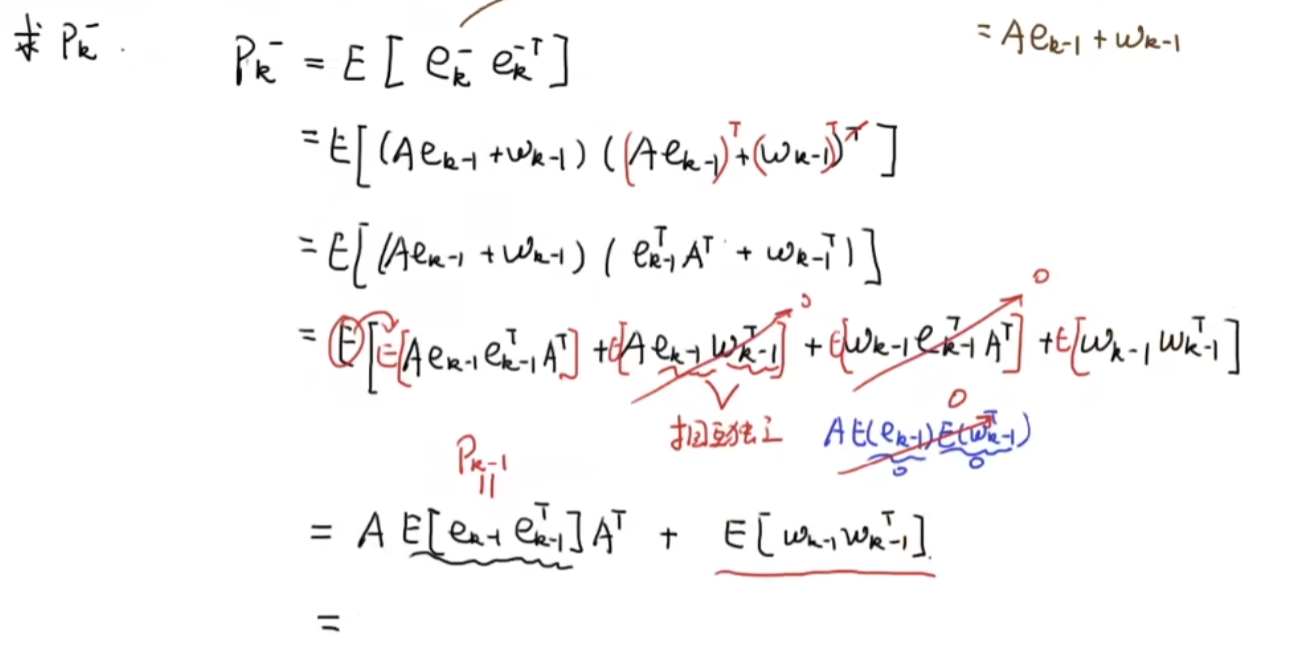 求 P_k^-. P_k^- = E[e_k^- e_k^{-T}] = Ae_{k-1} + w_{k-1}
= E[(Ae_{k-1} + w_{k-1})((Ae_{k-1})^T + (w_{k-1})^T)^T]
= E[(Ae_{k-1} + w_{k-1})(e_{k-1}^T A^T + w_{k-1}^T)]
0 0
= E[E[Ae_{k-1} e_{k-1}^T A^T] + E[Ae_{k-1} w_{k-1}^T] + E[w_{k-1} e_{k-1}^T A^T] + E[w_{k-1} w_{k-1}^T]
0
相互独立 AE(e_{k-1})E(w_{k-1}^T)
0 0
P_{k-1}
||
= A E[e_{k-1} e_{k-1}^T]A^T + E[w_{k-1} w_{k-1}^T].
=